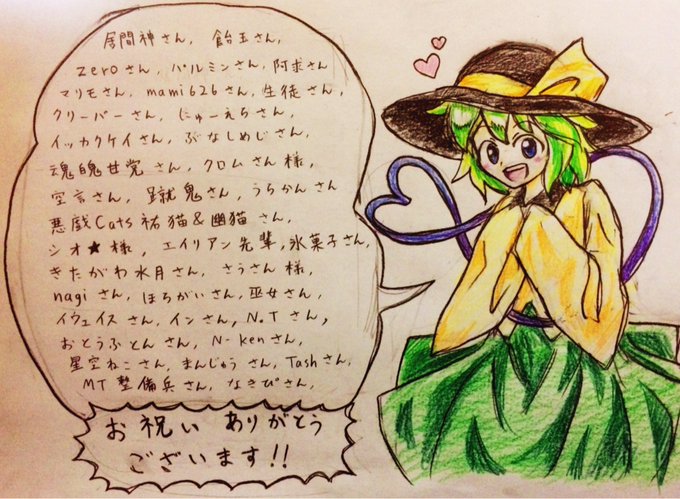 居間神さん, 飴玉さん,
zeroさん, パルミンさん, 阿求さん
マリモさん, mami626さん, 生徒さん,
クリーパーさん, にゅーえらさん,
イッカクケイさん, ぶなしめじさん,
魂魄甘党さん, クロムさん様,
空言さん, 蹴鬼さん, うらかんさん
悪戯Cats祐猫&幽猫さん,
シオ★様, エイリアン先輩, 氷菓子さん,
きたがわ水月さん, さうさん様,
nagiさん, ほちがいさん, 巫女さん,
イウェイスさん, インさん, N.Tさん,
おとうふとんさん, N-kenさん,
星空ねこさん, まんじゅうさん, Tashさん,
MT整備兵さん, なきぴさん,
お祝いありがとう
ございます!!